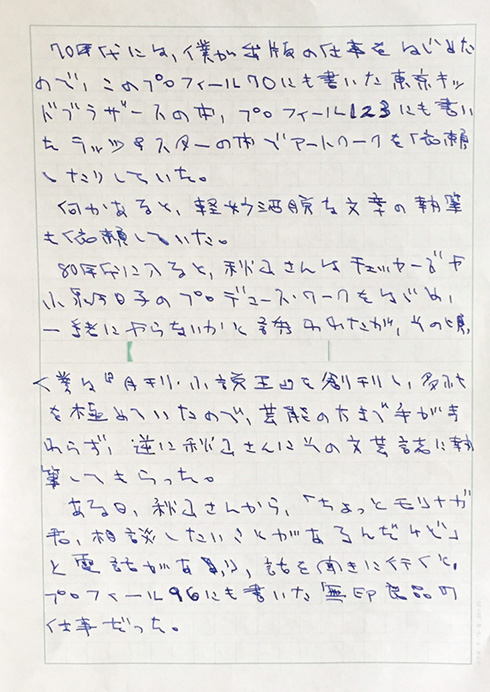 70年代には、僕が出版の仕事をはじめた
ので、このプロフィール70にも書いた東京キッ
ドブラザースの本、プロフィール123にも書い
たラッツ&スターの本でアートワークを依頼
したりしていた。
何かあると、軽妙洒脱な文章の執筆
も依頼していた。
80年代に入ると、秋山さんはチェッカーズや
小泉今日子のプロデュース・ワークをはじめ、
一緒にやらないかと誘われたが、その頃、
僕は『月刊・小説王』を創刊し、多忙
を極めていたので、芸能の方まで手がま
わらず、逆に秋山さんにその文芸誌に執
筆してもらった。
ある日、秋山さんから、「ちょっとモリナガ
君、相談したいことがあるんだけど」
と電話があり、話を聞きに行くと、
プロフィール96にも書いた無印良品の
仕事だった。